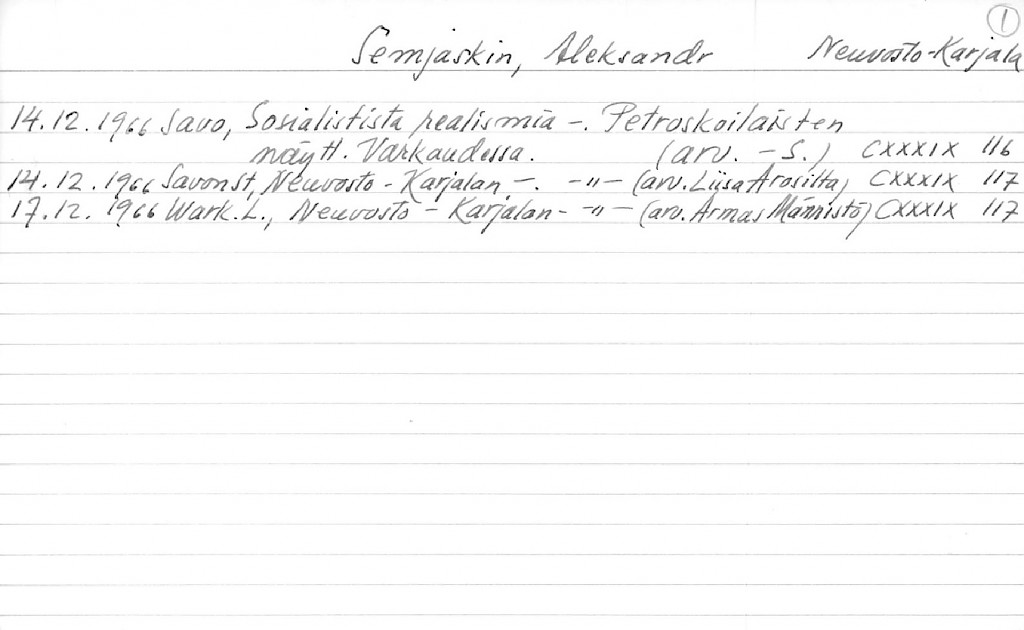 1
Semjaskin, Aleksandr Neuvosto-Karjala
14.12.1966 Savo, Sosialistista realismia -. Petroskoilaisten
näytt. Varkaudessa. (arv. - S.) CXXXIX 116
14.12.1966 Savon St, Neuvosto - Karjalan -. -"- (arv. Liisa Arosilta) CXXXIX 117
17.12.1966 Wark. L., Neuvosto - Karjalan - -"- (arv. Armas Männistö) CXXXIX 117